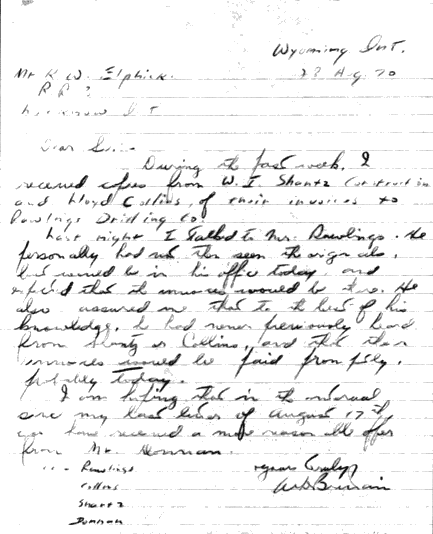 Wyoming Ont.
Mr K W. Elphick. 28 Aug. 70
R R 3
Lucknow Ont
Dear Sir:-
During the past week, I
received copies from W. I Shantz Construction
and Lloyd Collins, of their invoices to
Rawlings Drilling Co.
Last night I talked to Mr. Rawlings. He
personally had not then seen the originals,
but would be in his office today and
expected that the invoices would be there. He
also assured me that to the best of his
knowledge, he had never previously heard
from Shantz or Collins, and that their
invoices would be paid promptly,
probably today.
I am hoping that in the interval
since my last letter of August 17th
you have received a more reasonable offer
from Mr.
c.c. - Rawlings yours truly
Collins
Shantz